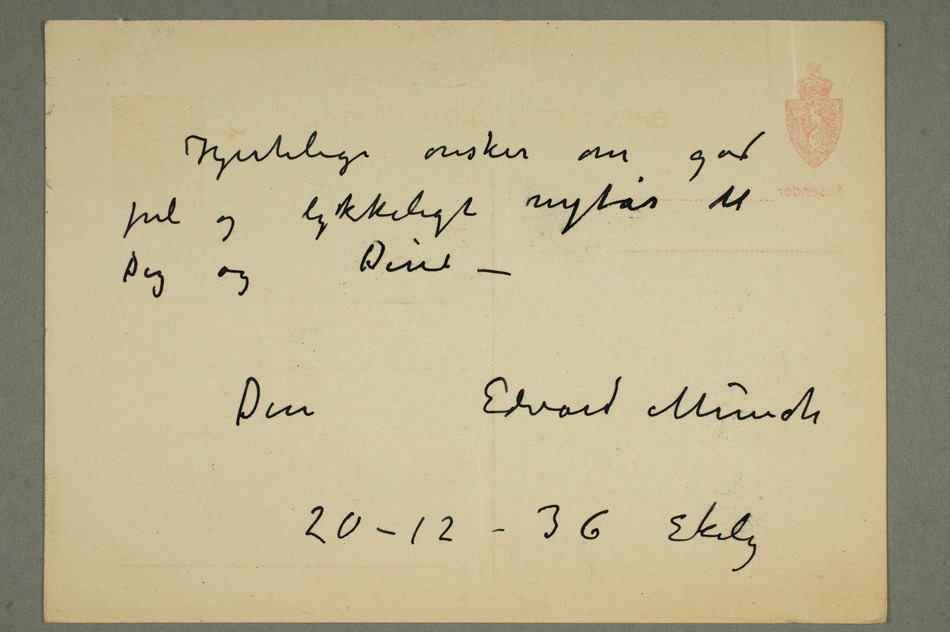 Hjertelige ønsker om god
jul og lykkeligt nytår til
Dig og Dine –
Din Edvard Munch
20-12-36 Ekely
BREVKORT
Avsender